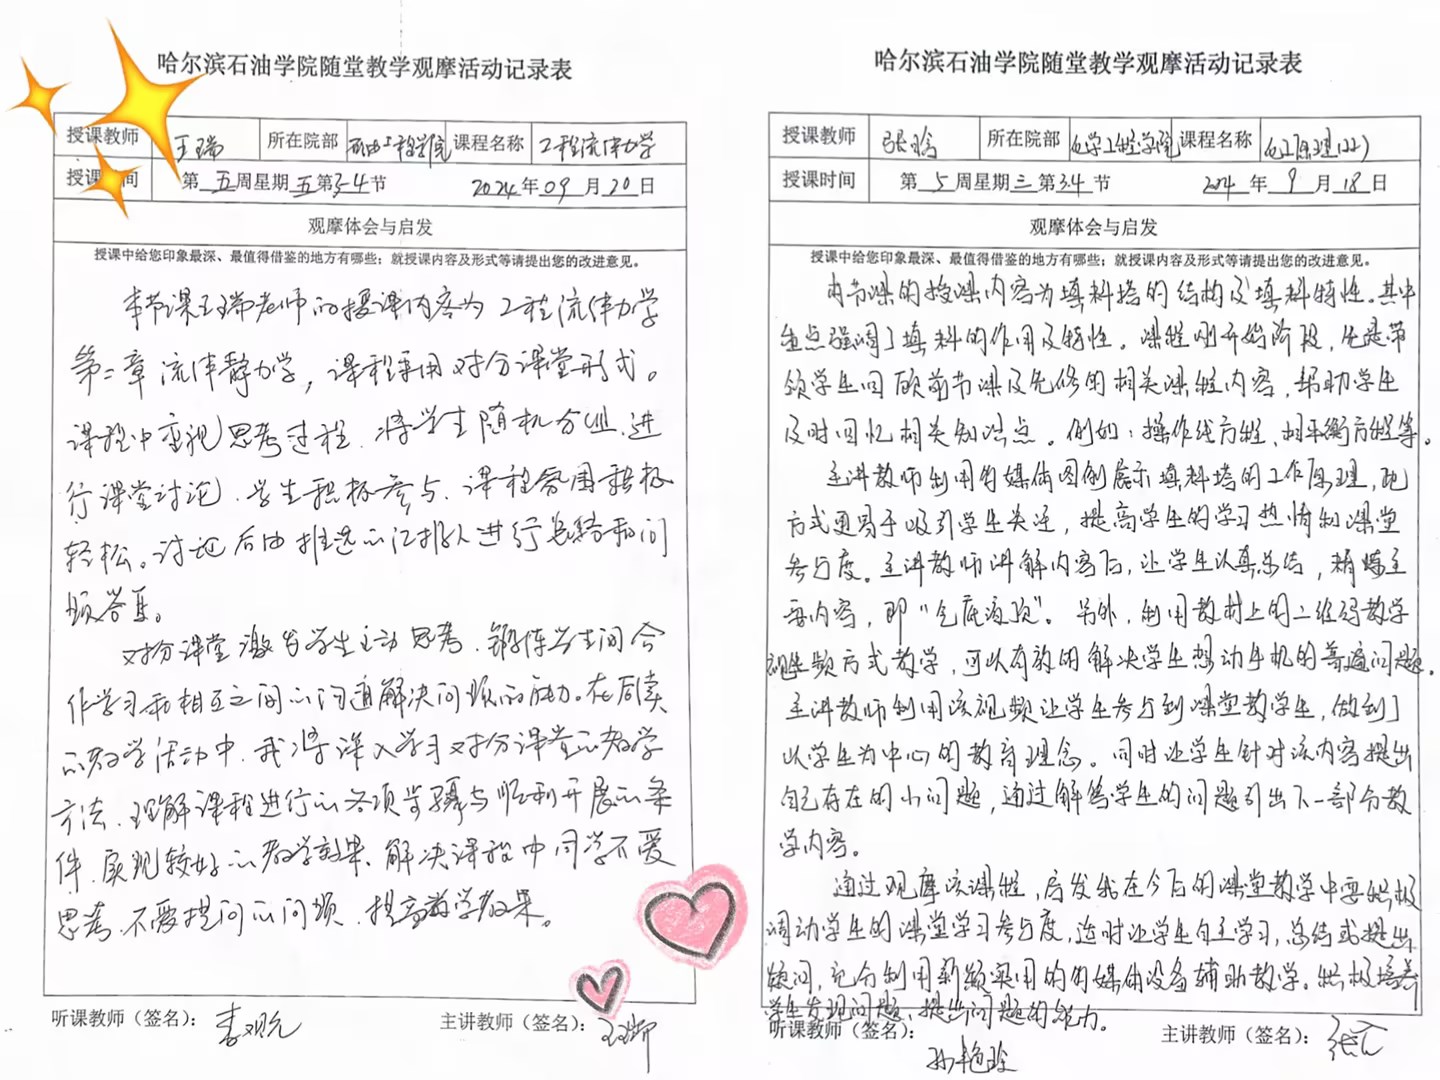 哈尔滨石油学院随堂教学观摩活动记录表
授课教师 王瑞 所在院部 石油工程学院 课程名称 工程流体力学
授课时间 第五周星期五第3-4节 2024年09月20日
观摩体会与启发
授课中给您印象最深、最值得借鉴的地方有哪些；就授课内容及形式等请提出您的改进意见。
本节课王瑞老师的授课内容为工程流体力学
第二章流体静力学，课程采用对分课堂形式。
课程中重视思考过程，将学生随机分组，进
行课堂讨论，学生积极参与，课程氛围积极
轻松。讨论后由推选的汇报人进行总结和问
题答集。
对分课堂激发学生主动思考，锻炼学生间合
作学习和相互之间的沟通解决问题的能力。在后续
的教学活动中，我将深入学习对分课堂的教学
方法，理解课程进行的各项步骤与顺利开展的条
件，实现较好的教学效果，解决课程中同学不爱
思考，不爱提问的问题，提高教学效果。
听课教师（签名）：
主讲教师（签名）：王瑞
哈尔滨石油学院随堂教学观摩活动记录表
授课教师 张 所在院部 化学工程学院 课程名称 化工原理(2)
授课时间 第5周星期三第34节 2024年9月18日
观摩体会与启发
授课中给您印象最深、最值得借鉴的地方有哪些；就授课内容及形式等请提出您的改进意见。
本节课的授课内容为填料塔的结构及填料特性。其中
重点强调了填料的作用及特性。课程刚开始阶段，先是带
领学生回顾前节课及先修的相关课程内容，帮助学生
及时回忆相关知识点。例如：操作线方程、相平衡方程等。
主讲教师利用多媒体图例展示填料塔的工作原理，此
方式更易于吸引学生关注，提高学生的学习热情和课堂
参与度。主讲教师讲解内容后，让学生认真总结，精炼主
要内容，即“气底液顶”。另外，利用教材上的二维码教学
视频方式教学，可以有效的解决学生想动手机的普遍问题。
主讲教师利用该视频让学生参与到课堂教学生，做到了
以学生为中心的教育理念。同时让学生针对该内容提出
自己存在的小问题，通过解答学生的问题引出下一部分教
学内容。
通过观摩该课程，启发我在今后的课堂教学中要积极
调动学生的课堂学习参与度，适时让学生自主学习，总结或提出
疑问，充分利用新颖实用的多媒体设备辅助教学。积极培养
学生发现问题、提出问题的能力。
听课教师（签名）：
主讲教师（签名）：张